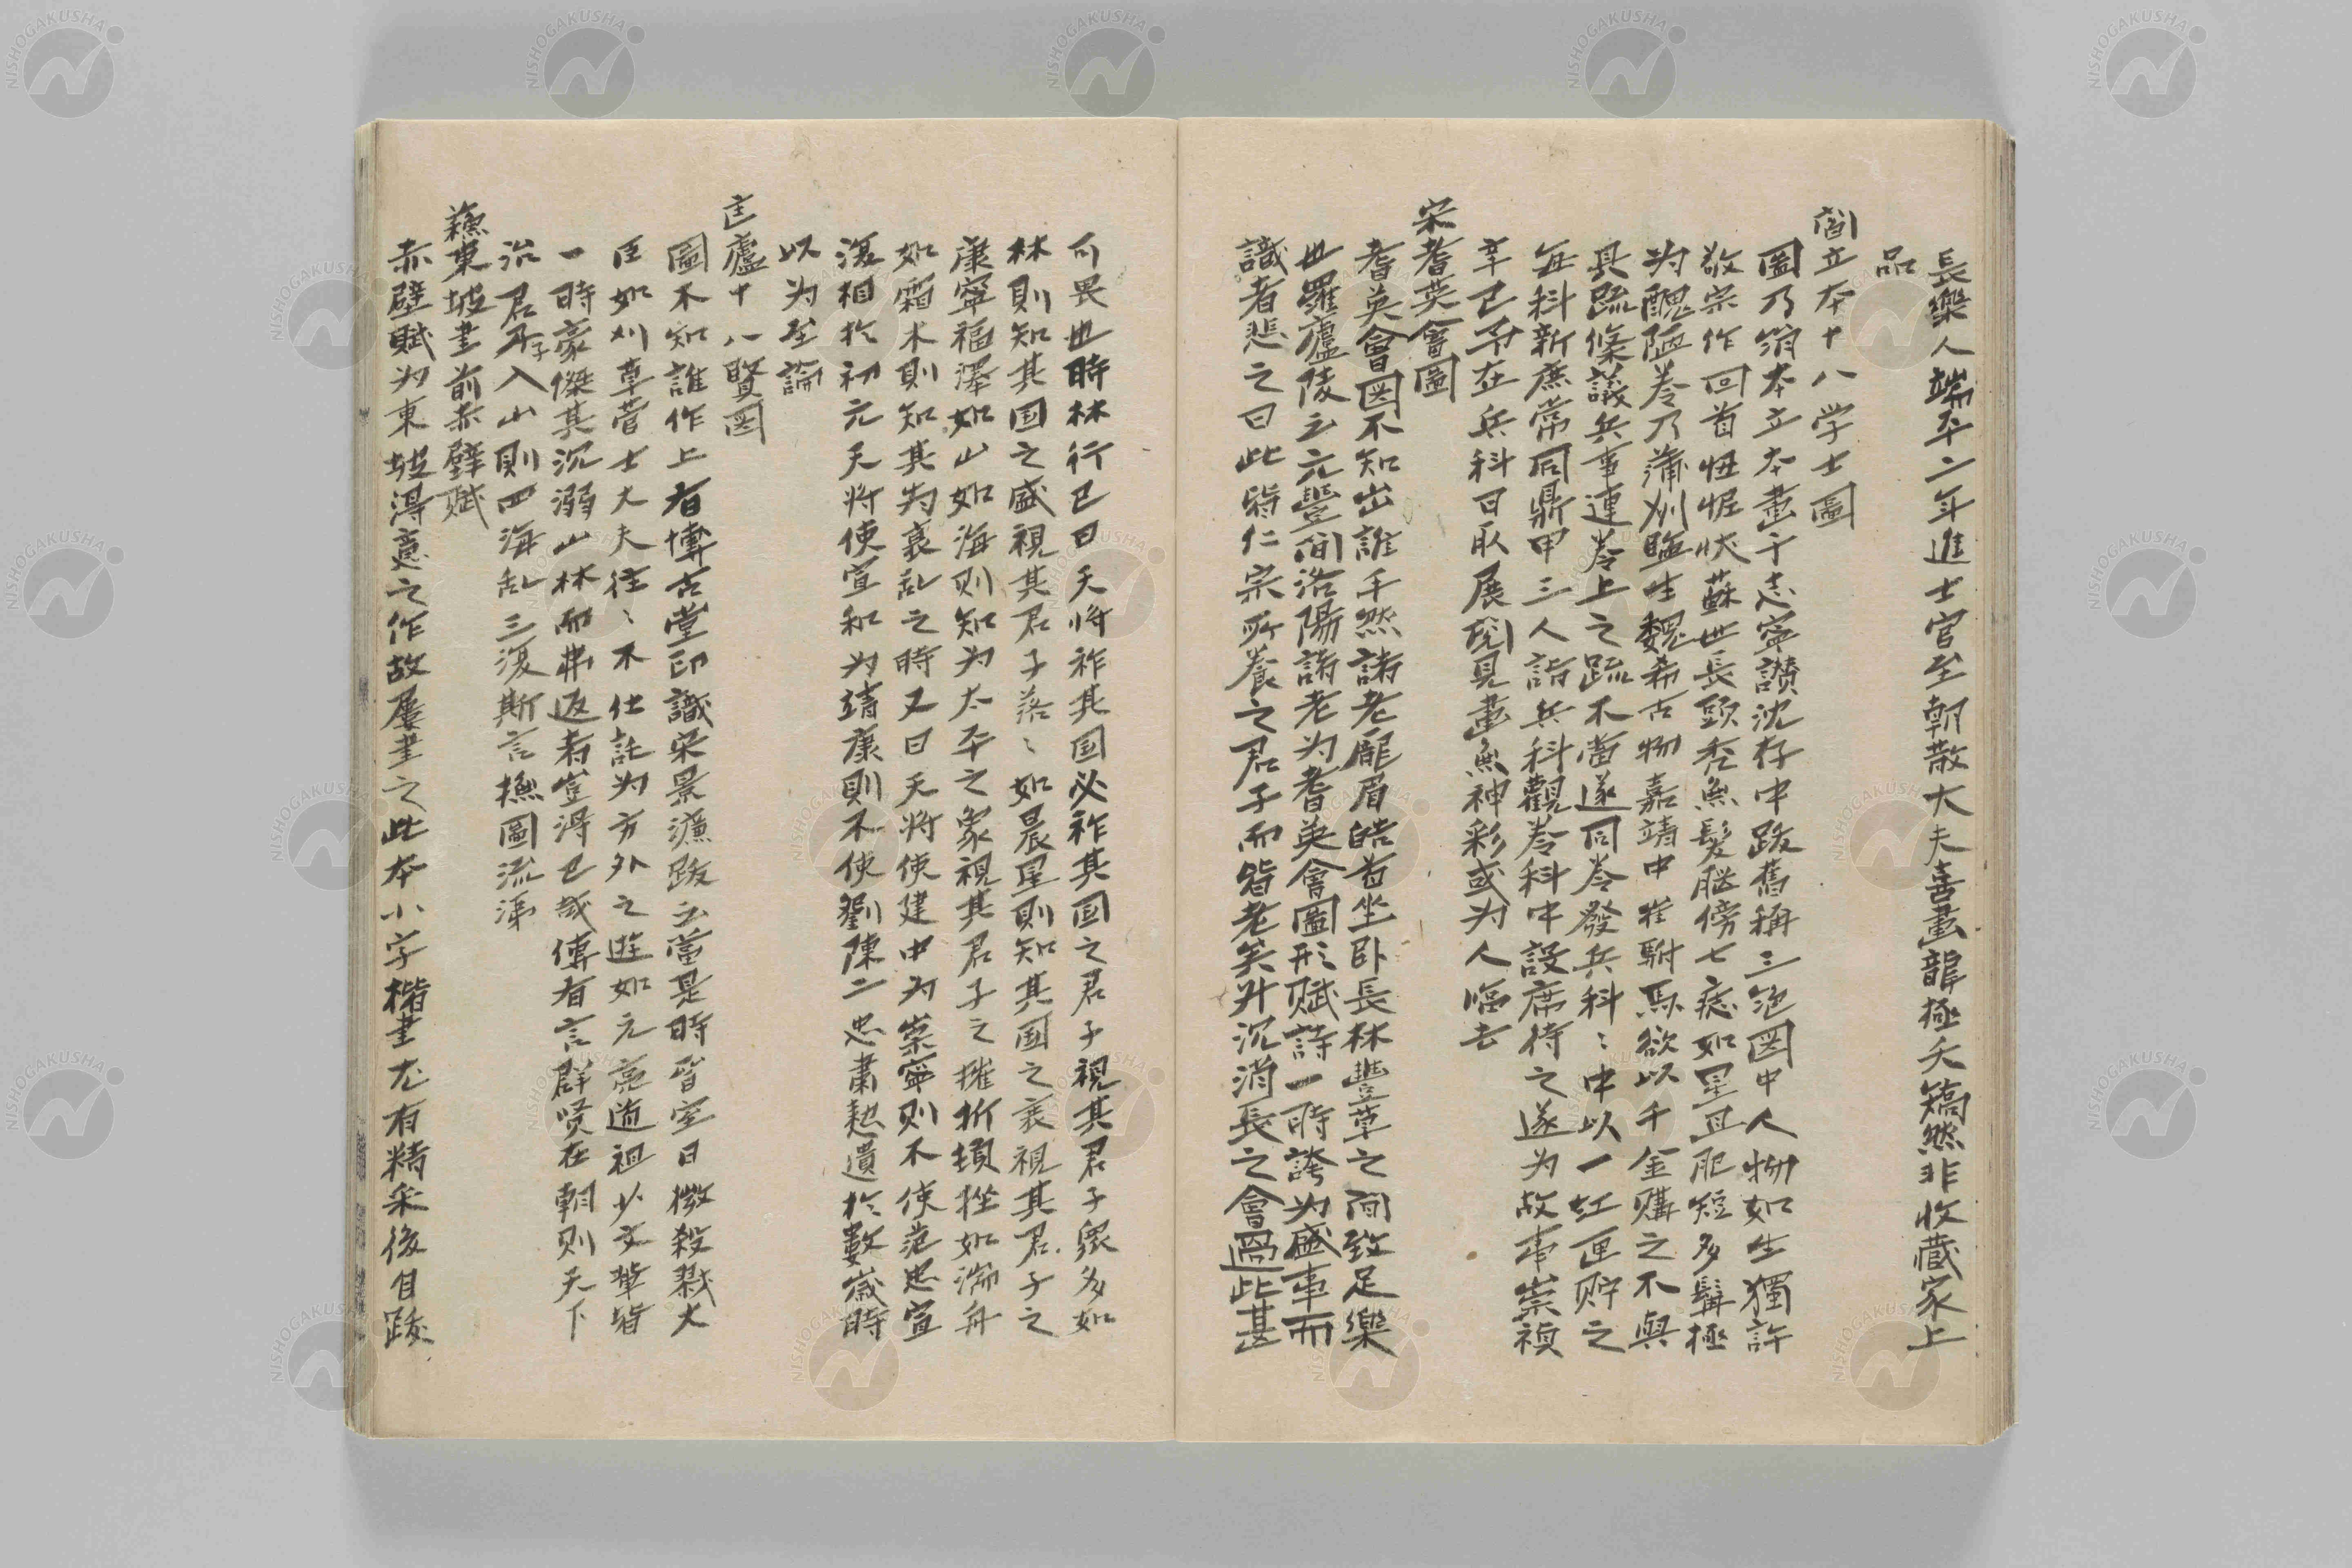 長樂人端平二年進士官至朝散大夫喜畫龍極夭矯然非收蔵家上
品
閻立本十八学士圖
圖乃絹本立本畫于志寧讃沈存中跋舊稱三絶圖中人物如生獨許
敬宗作回首忸怩状蘇世長頭禿無髮脳傍七痣如星且肥短多髯極
为醜陋巻乃蒲州監生魏希古物嘉靖中崔駙馬欲以千金購之不與
具疏條議兵事連巻上之疏不當遂同巻發兵科〻中以一紅匣貯之
每科新庶常同鼎甲三人詣兵科觀巻科中設席待之遂为故事崇禎
辛巳予在兵科日取展玩見畫無神彩或为人臨去
宋耆英會圖
耆英會図不知出誰手然諸老龐眉皓首坐卧長林豐草之間致足樂
也羅廬陵云元豐間洛陽諸老为耆英會圖形賦詩一時誇为盛事而
識者悲之曰此皆仁宗所養之君子而皆老矣升沉消長之會過此甚
可畏也時林行己曰天将祚其国必祚其国之君子視其君子衆多如
林則知其国之盛視其君子落〻如晨星則知其国之衰視其君子之
康寧福澤如山如海则知为太平之象視其君子之摧折損挫如湍舟
如霜木則知其为衰乱之時又曰天将使建中为崇寧则不使范忠宣
復相於初元天将使宣和为靖康則不使劉陳二忠肅憖遺於數歲時
以为至論
匡廬十八賢図
圖不知誰作上有博古堂印識宋景濂跋云當是時晋室日微殺戮大
臣如刈草菅士大夫往〻不仕託为方外之遊如元亮道祖少文輩皆
一時豪傑其沉溺山林而弗返者豈得已哉傳有言群贤在朝则天下
治君子入山則四海乱三復斯言撫圖流涕
蘇東坡書前赤壁赋
赤壁賦为東坡得意之作故屡書之此本小字楷書尤有精采後自跋
NISHOGAKUSHA